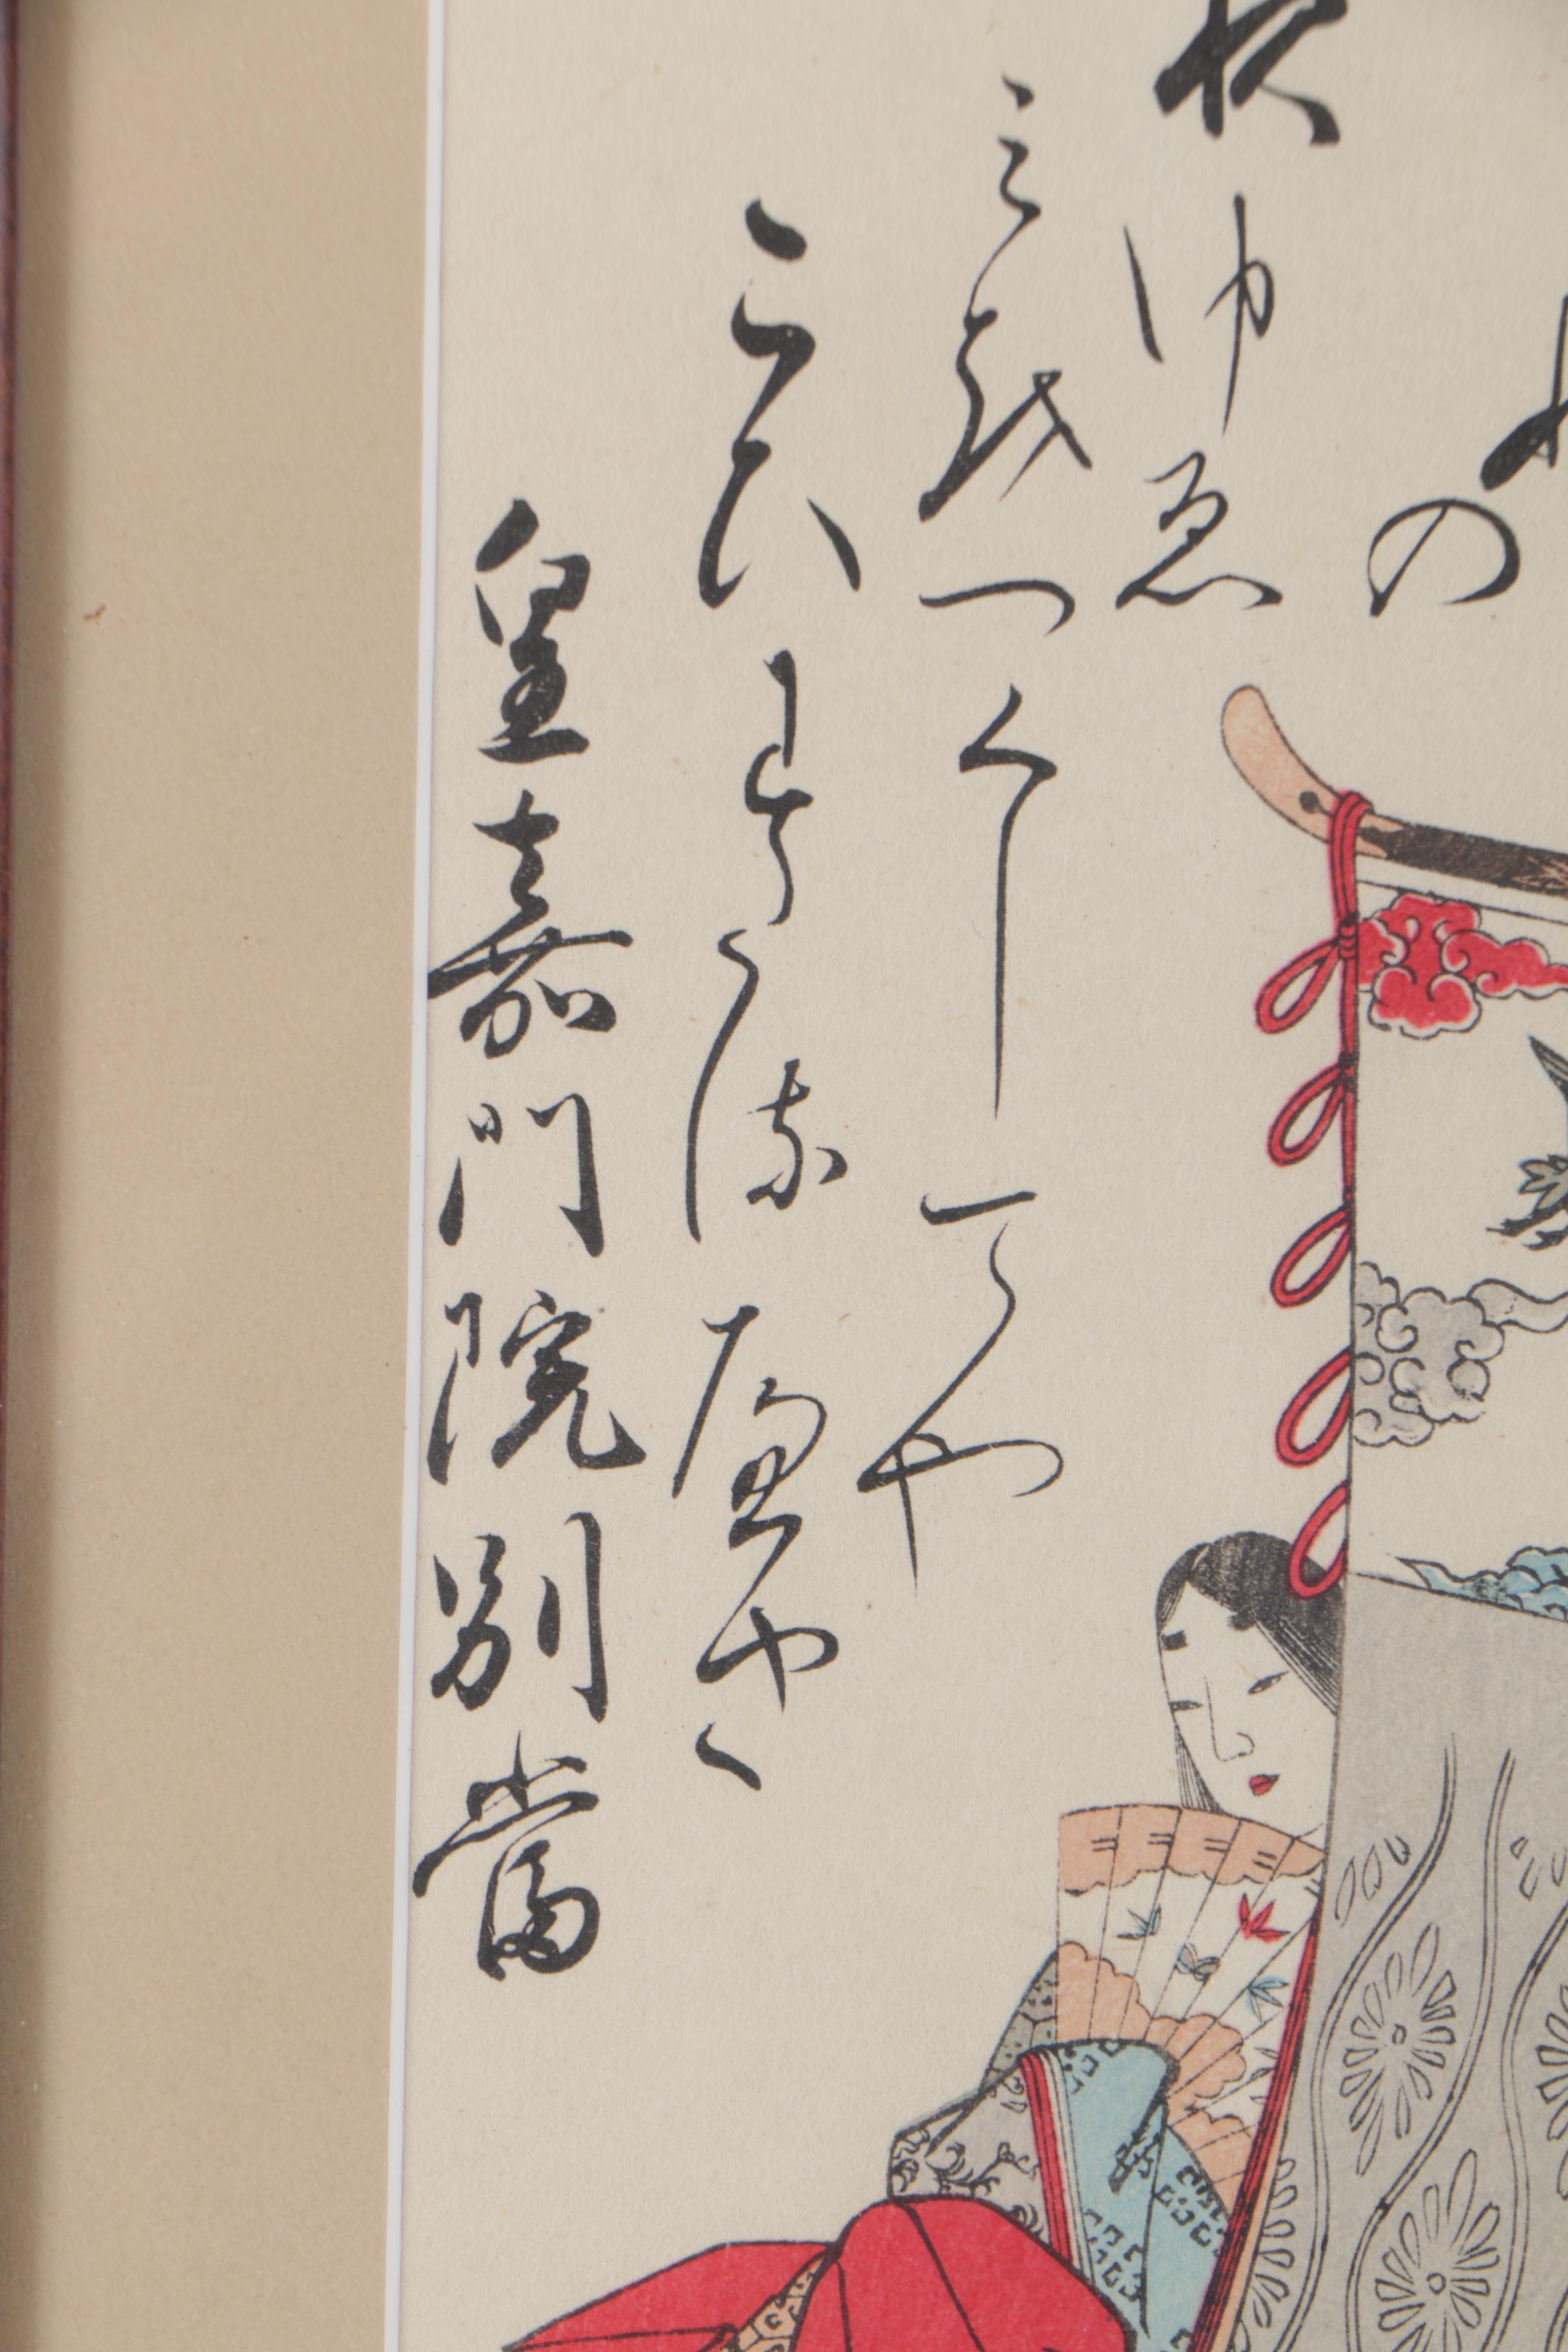 の
夜ゆゑ
みをつくしてや
こひわたるへき
皇嘉門院別當